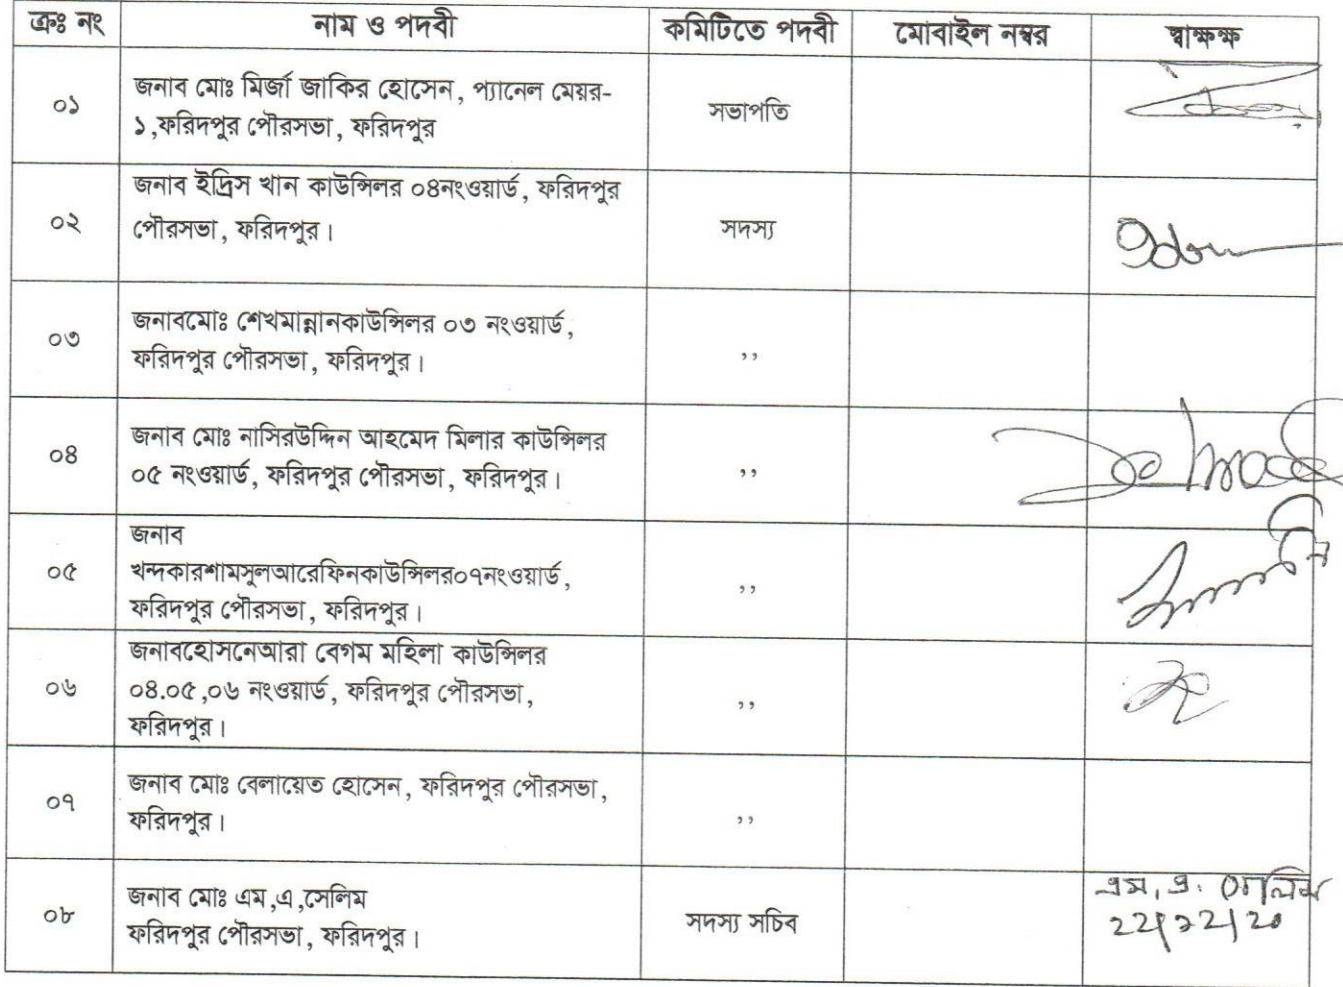 ক্রঃ নং নাম ও পদবী কমিটিতে পদবী মোবাইল নম্বর স্বাক্ষক্ষ
০১ জনাব মোঃ মির্জা জাকির হোসেন, প্যানেল মেয়র-
১,ফরিদপুর পৌরসভা, ফরিদপুর সভাপতি
০২ জনাব ইদ্রিস খান কাউন্সিলর ০৪নংওয়ার্ড, ফরিদপুর
পৌরসভা, ফরিদপুর। সদস্য
০৩ জনাবমোঃ শেখমান্নানকাউন্সিলর ০৩ নংওয়ার্ড,
ফরিদপুর পৌরসভা, ফরিদপুর। ,,
০৪ জনাব মোঃ নাসিরউদ্দিন আহমেদ মিলার কাউন্সিলর
০৫ নংওয়ার্ড, ফরিদপুর পৌরসভা, ফরিদপুর। ,,
০৫ জনাব
খন্দকারশামসুলআরেফিনকাউন্সিলর০৭নংওয়ার্ড,
ফরিদপুর পৌরসভা, ফরিদপুর। ,,
০৬ জনাবহোসনেআরা বেগম মহিলা কাউন্সিলর
০৪.০৫,০৬ নংওয়ার্ড, ফরিদপুর পৌরসভা,
ফরিদপুর। ,,
০৭ জনাব মোঃ বেলায়েত হোসেন, ফরিদপুর পৌরসভা,
ফরিদপুর। ,,
০৮ জনাব মোঃ এম,এ,সেলিম
ফরিদপুর পৌরসভা, ফরিদপুর। সদস্য সচিব
এম, এ. সেলিম
২২/১২/২০